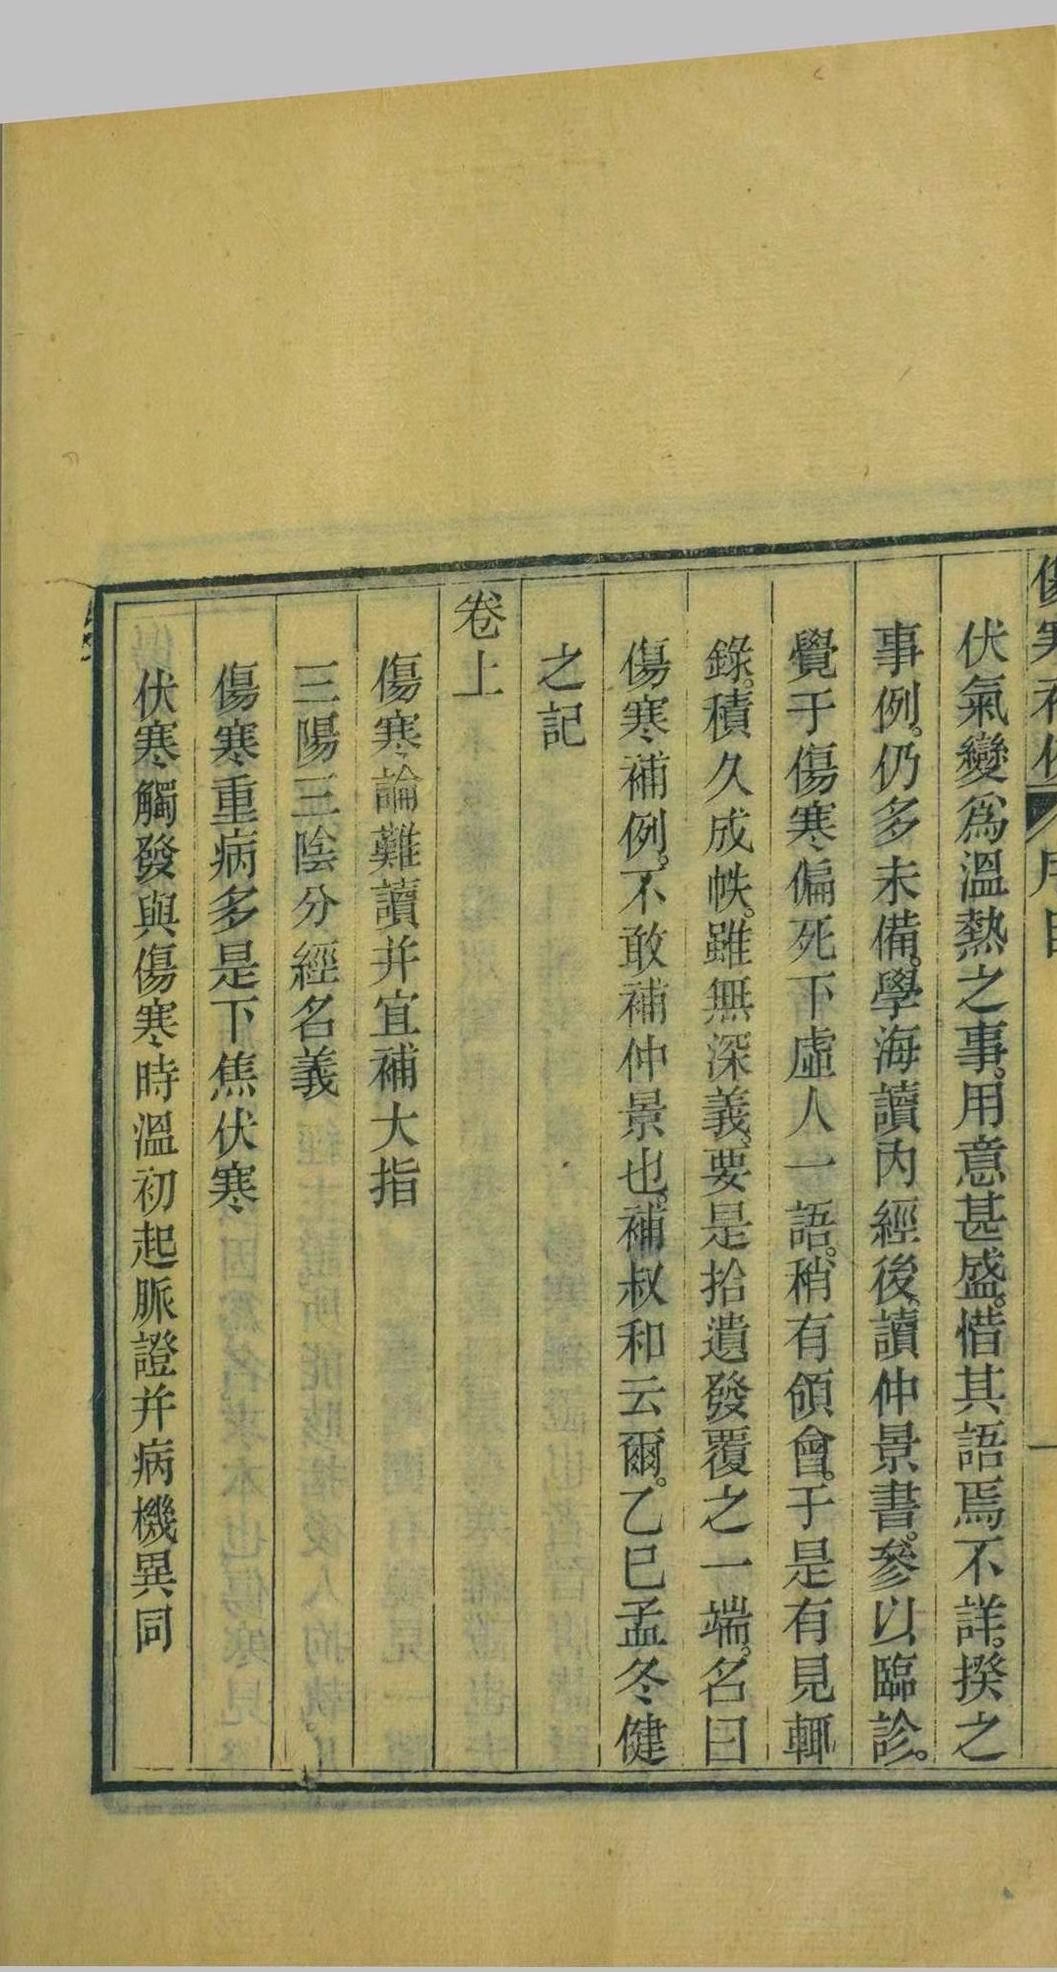 伏氣變爲溫熱之事。用意甚盛。惜其語焉不詳。揆之
事例。仍多未備。學海讀內經後。讀仲景書。參以臨診。
覺于傷寒偏死下虛人一語。稍有領會。于是有見輒
錄。積久成帙。雖無深義。要是拾遺發覆之一端。名曰
傷寒補例。不敢補仲景也。補叔和云爾。乙巳孟冬健
之記
卷上
傷寒論難讀并宜補大指
三陽三陰分經名義
傷寒重病多是下焦伏寒
伏寒觸發與傷寒時溫初起脈證并病機異同